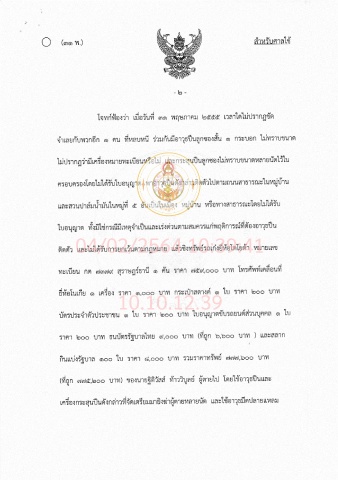 (๓๑ พ.)
สำหรับศาลใช้
- ๒ -
โจทก์ฟ้องว่า เมื่อวันที่ ๓๑ พฤษภาคม ๒๕๕๕ เวลาใดไม่ปรากฏชัด
จำเลยกับพวกอีก ๑ คน ที่หลบหนี ร่วมกันมีอาวุธปืนลูกซองสั้น ๑ กระบอก ไม่ทราบขนาด
ไม่ปรากฏว่ามีเครื่องหมายทะเบียนหรือไม่ และกระสุนปืนลูกซองไม่ทราบขนาดหลายนัดไว้ใน
ครอบครองโดยไม่ได้รับใบอนุญาต พาอาวุธปืนดังกล่าวติดตัวไปตามถนนสาธารณะในหมู่บ้าน
และสวนปาล์มน้ำมันในหมู่ที่ ๕ อันเป็นในเมือง หมู่บ้าน หรือทางสาธารณะโดยไม่ได้รับ
ใบอนุญาต ทั้งมิใช่กรณีมีเหตุจำเป็นและเร่งด่วนตามสมควรแก่พฤติการณ์ที่ต้องอาวุธปืน
ติดตัว และไม่ได้รับการยกเว้นตามกฎหมาย แล้วชิงทรัพย์รถเก๋งยี่ห้อโตโยต้า หมายเลข
04/02/2564
ทะเบียน กค ๗๗๗๙ สุราษฎร์ธานี ๑ คัน ราคา ๗๕๙,๐๐๐ บาท โทรศัพท์เคลื่อนที่
ยี่ห้อโนเกีย ๑ เครื่อง ราคา ๓,๐๐๐ บาท กระเป๋าสตางค์ ๑ ใบ ราคา ๒๐๐ บาท
10.10.12.39
บัตรประจำตัวประชาชน ๑ ใบ ราคา ๒๐๐ บาท ใบอนุญาตขับรถยนต์ส่วนบุคคล ๑ ใบ
ราคา ๒๐๐ บาท ธนบัตรรัฐบาลไทย ๙,๐๐๐ บาท (ที่ถูก ๖,๐๐๐ บาท ) และสลาก
กินแบ่งรัฐบาล ๑๐๐ ใบ ราคา ๘,๐๐๐ บาท รวมราคาทรัพย์ ๗๗๗,๖๐๐ บาท
(ที่ถูก ๗๗๕,๒๐๐ บาท) ของนายฐิติวัสส์ ท้าววิบูลย์ ผู้ตายไป โดยใช้อาวุธปืนและ
เครื่องกระสุนปืนดังกล่าวที่จัดเตรียมมายิงฆ่าผู้ตายหลายนัด และใช้อาวุธมีดปลายแหลม